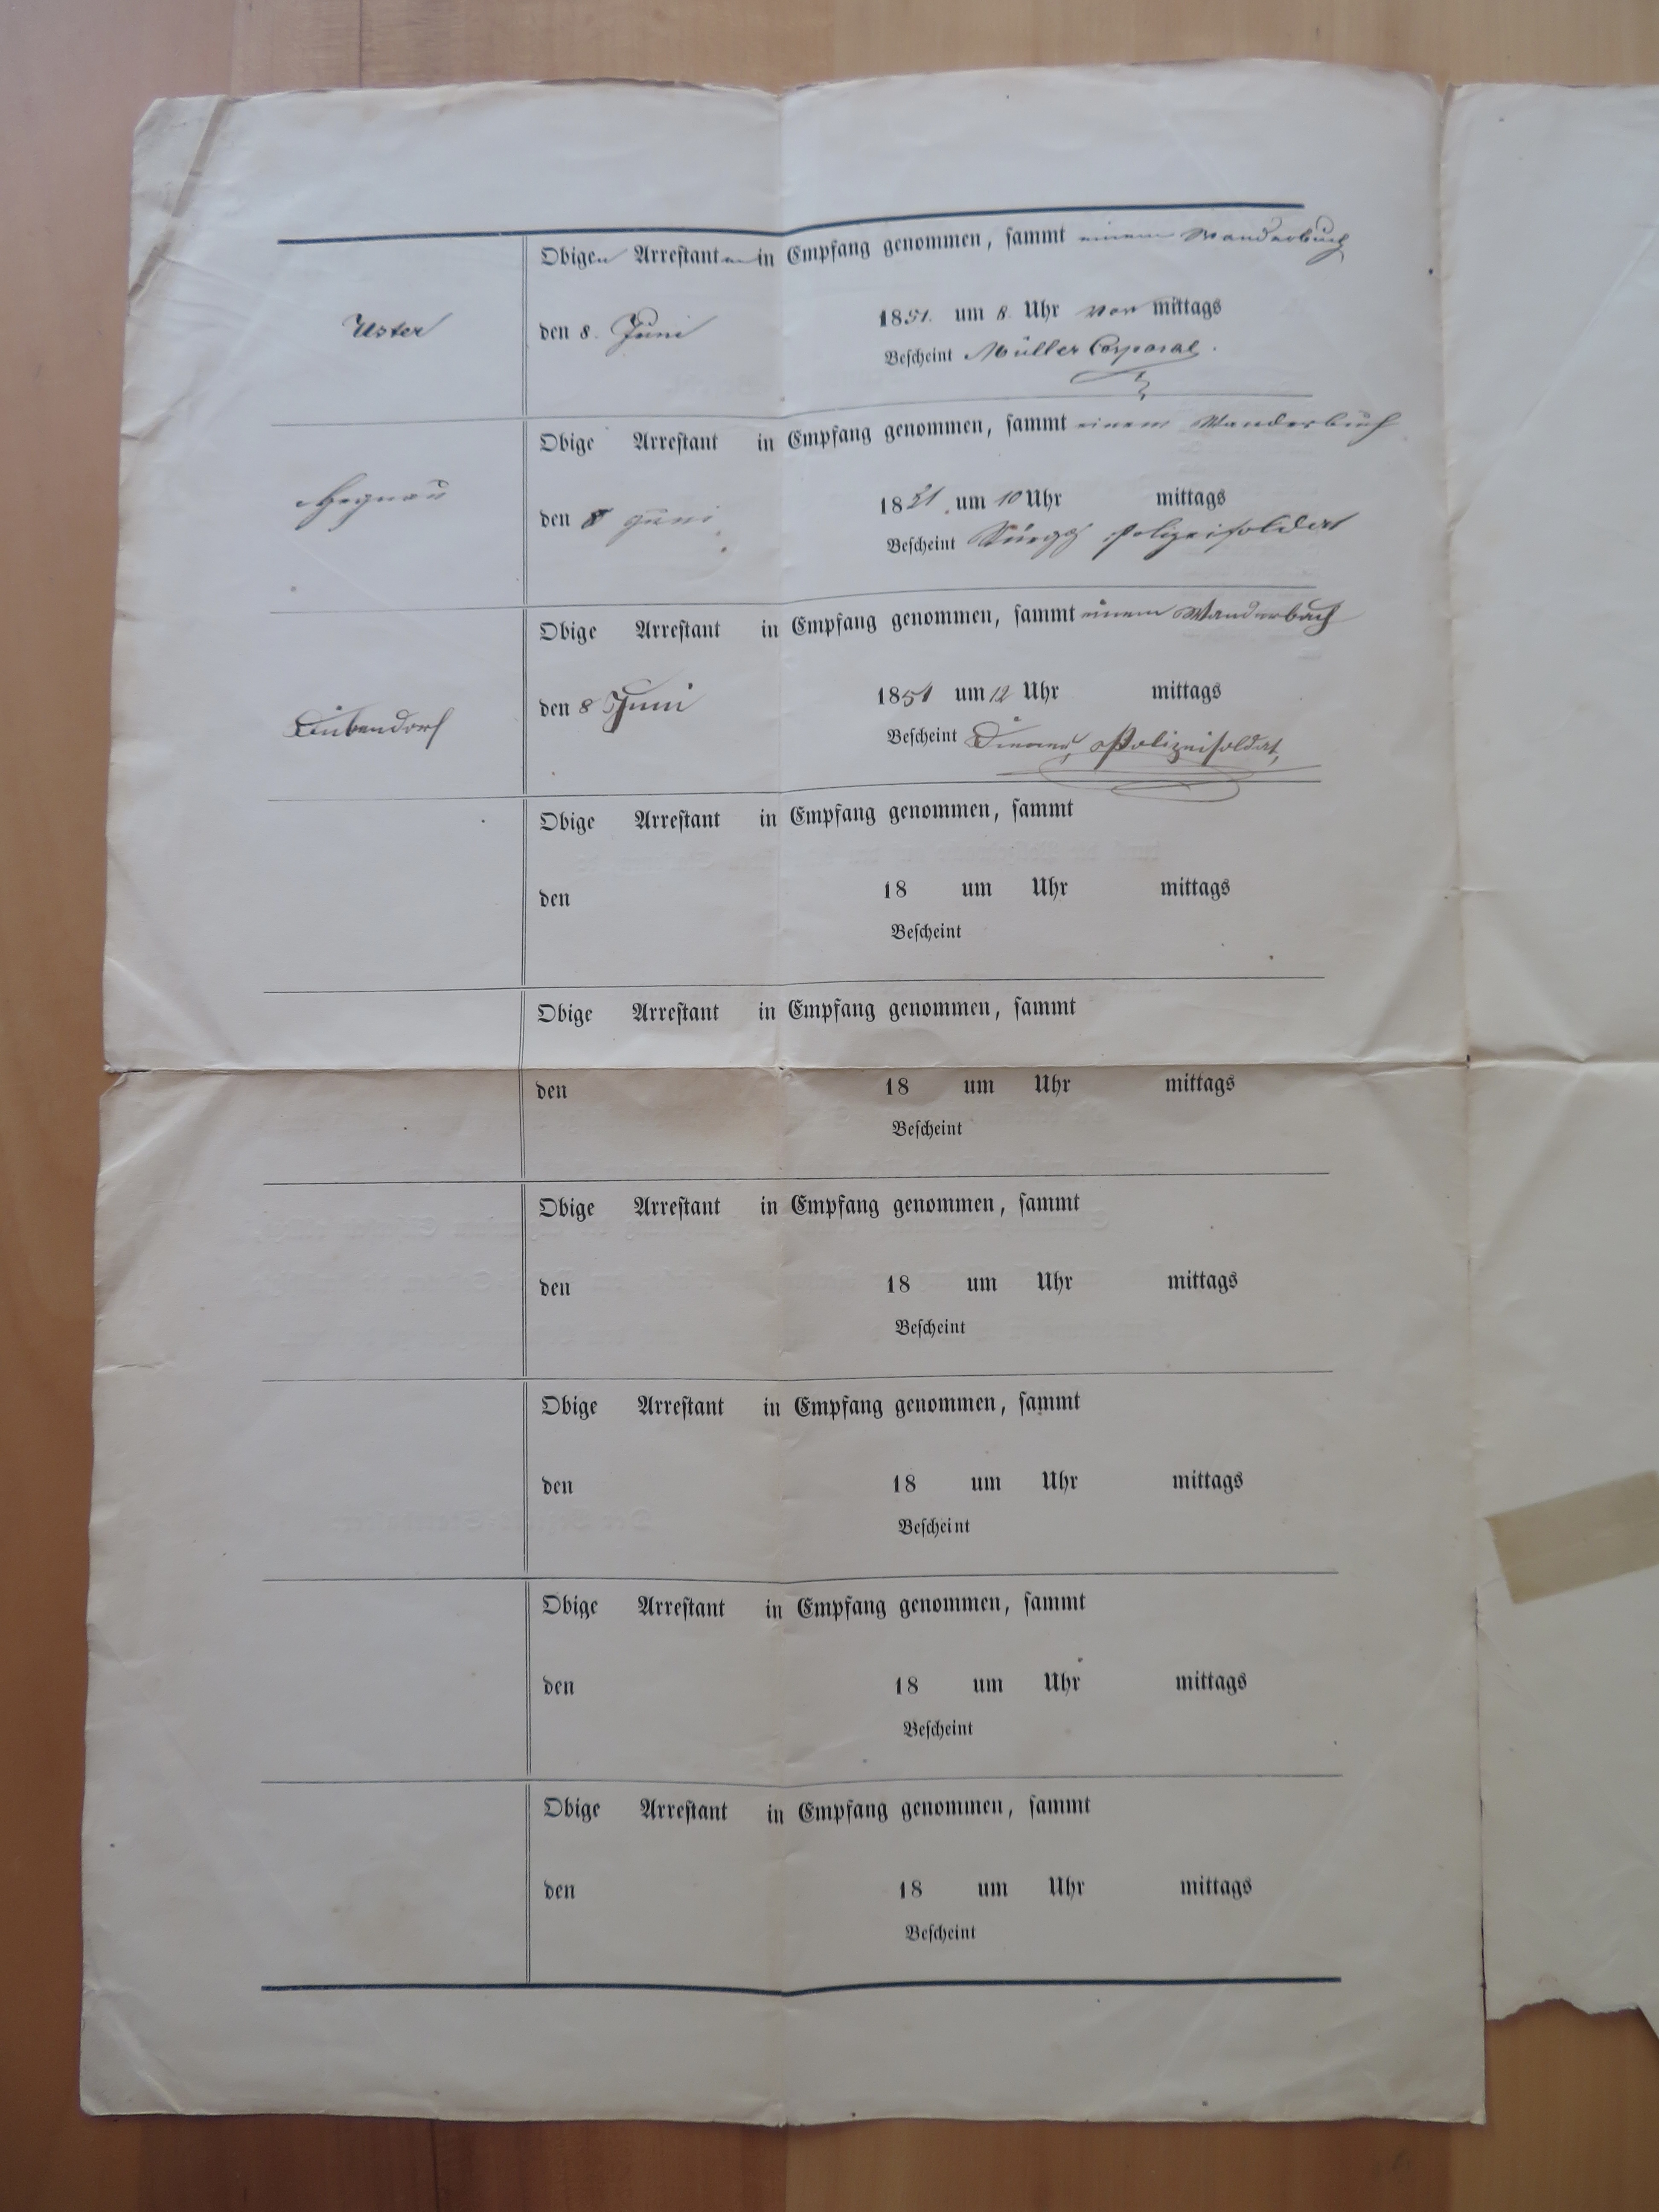 Obigen Arrestanten in Empfang genommen, sammt einem Wanderbuch
Uster
den 8. Juni 1851. um 8. Uhr vor mittags
Bescheint Müller Corporal.
Obige Arrestant in Empfang genommen, sammt einem Wanderbuch
Hegnau
den 8 Juni 1851 um 10 Uhr mittags
Bescheint Polizeisoldat
Obige Arrestant in Empfang genommen, sammt einem Wanderbuch
Dübendorf
den 8 Juni 1851 um 12 Uhr mittags
Bescheint Polizeisoldat,
Obige Arrestant in Empfang genommen, sammt
den 18 um Uhr mittags
Bescheint
Obige Arrestant in Empfang genommen, sammt
den 18 um Uhr mittags
Bescheint
Obige Arrestant in Empfang genommen, sammt
den 18 um Uhr mittags
Bescheint
Obige Arrestant in Empfang genommen, sammt
den 18 um Uhr mittags
Bescheint
Obige Arrestant in Empfang genommen, sammt
den 18 um Uhr mittags
Bescheint
Obige Arrestant in Empfang genommen, sammt
den 18 um Uhr mittags
Bescheint